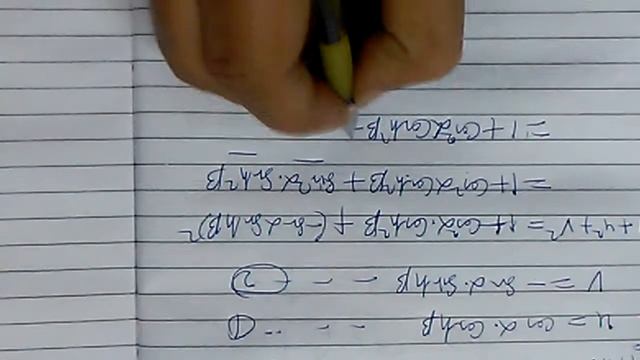 u = cosα.coshβ - - .. ①
v = -sinα.sinhβ - - - ②
1+u²+v² = 1+cos²α.cosh²β + (-sinα sinhβ)²
= 1+cos²α cosh²β + sin²α.sinh²β
= 1+cos²α cosh²β -